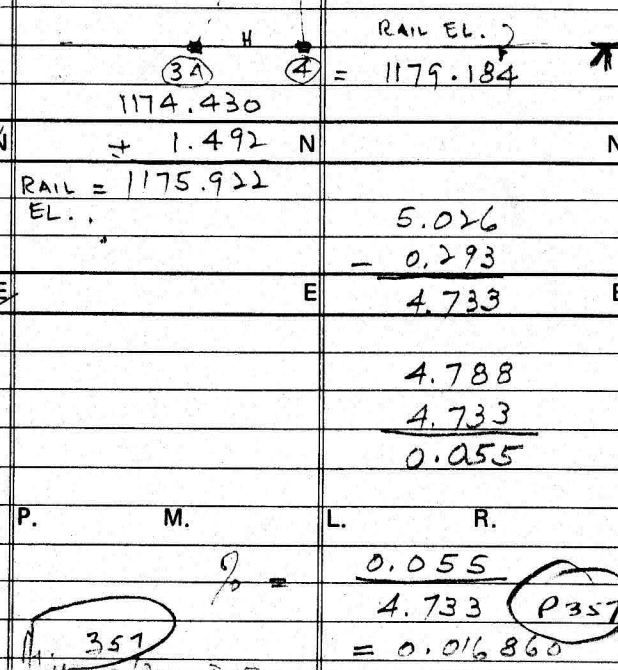 RAIL EL.
H
3A 4 = 1179.184
1174.430
+ 1.492 N
RAIL = 1175.922
EL..
5.026
- 0.293
E 4.733
4.788
4.733
0.055
P. M. L. R.
% = 0.055
4.733 P357
357 = 0.016860